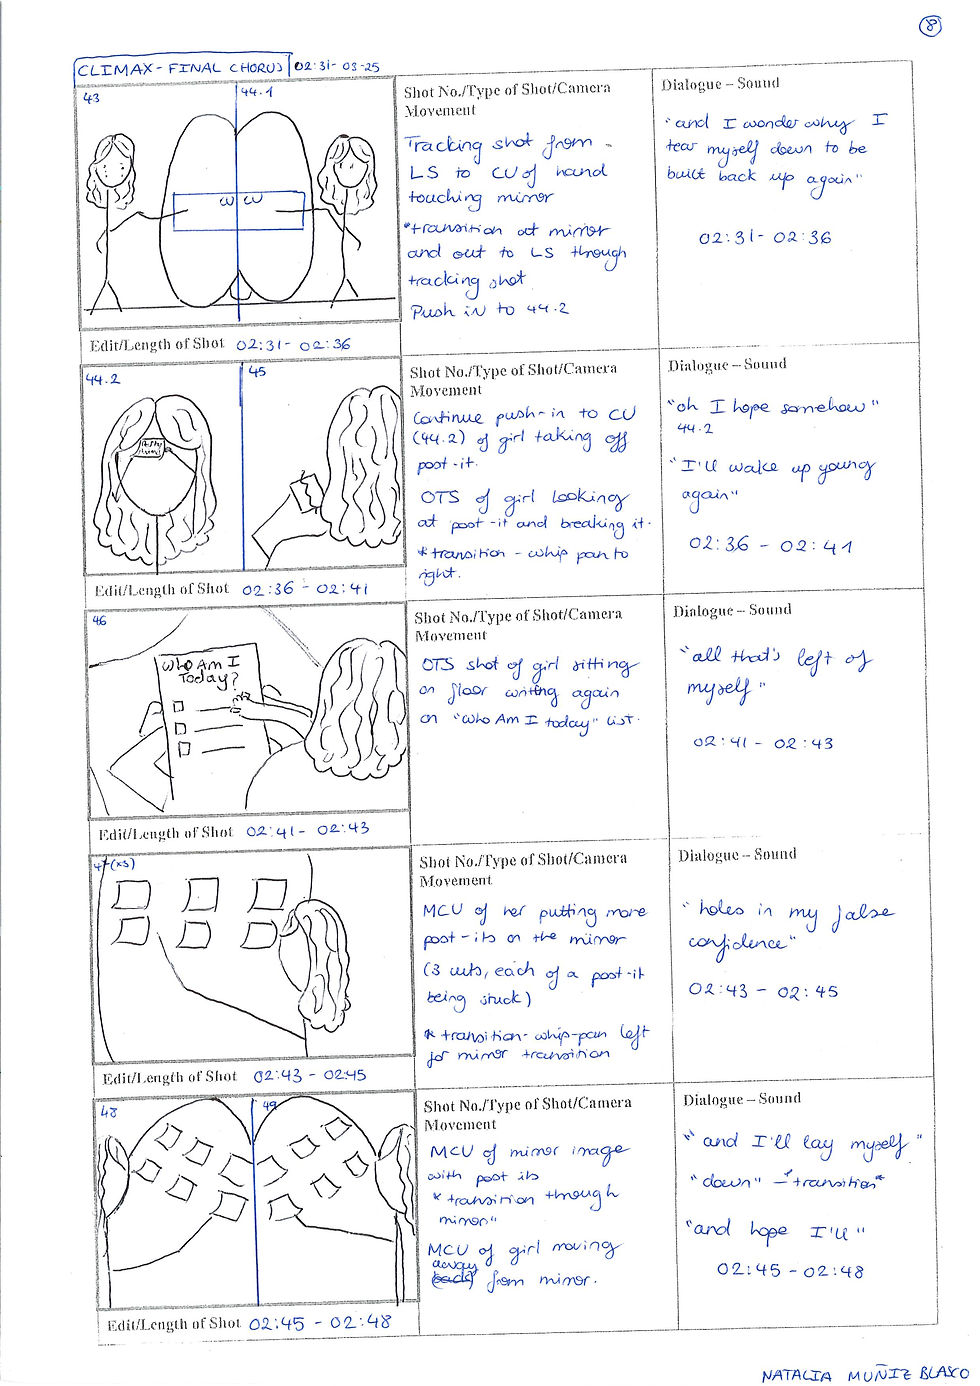 8
CLIMAX - FINAL CHORUS 02:31 - 03-25
43
44.1
CU CU
Shot No./Type of Shot/Camera
Movement
Tracking shot from
LS to CU of hand
touching mirror
*transition at mirror
and out to LS through
tracking shot
Push in to 44.2
Dialogue – Sound
"and I wonder why I
tear myself down to be
built back up again"
02:31 - 02:36
Edit/Length of Shot 02:31 - 02:36
44.2
45
Shot No./Type of Shot/Camera
Movement
Continue push-in to CU
(44.2) of girl taking off
post-it.
OTS of girl looking
at post-it and breaking it.
*transition - whip pan to
right.
Dialogue – Sound
"oh I hope somehow"
44.2
"I'll wake up young
again"
02:36 - 02:41
Edit/Length of Shot 02:36 - 02:41
46
Who Am I
Today?
Shot No./Type of Shot/Camera
Movement
OTS shot of girl sitting
on floor writing again
on "Who Am I today" list.
Dialogue – Sound
"all that's left of
myself"
02:41 - 02:43
Edit/Length of Shot 02:41 - 02:43
47(x3)
Shot No./Type of Shot/Camera
Movement
MCU of her putting more
post-its on the mirror
(3 cuts, each of a post-it
being stuck)
* transition - whip-pan left
for mirror transition
Dialogue – Sound
"holes in my false
confidence"
02:43 - 02:45
Edit/Length of Shot 02:43 - 02:45
48
49
Shot No./Type of Shot/Camera
Movement
MCU of mirror image
with post its
*transition through
mirror"
MCU of girl moving
away
back from mirror.
Dialogue – Sound
"and I'll lay myself"
"down" - *transition*
"and hope I'll"
02:45 - 02:48
Edit/Length of Shot 02:45 - 02:48
NATALIA MUÑIZ BLASCO